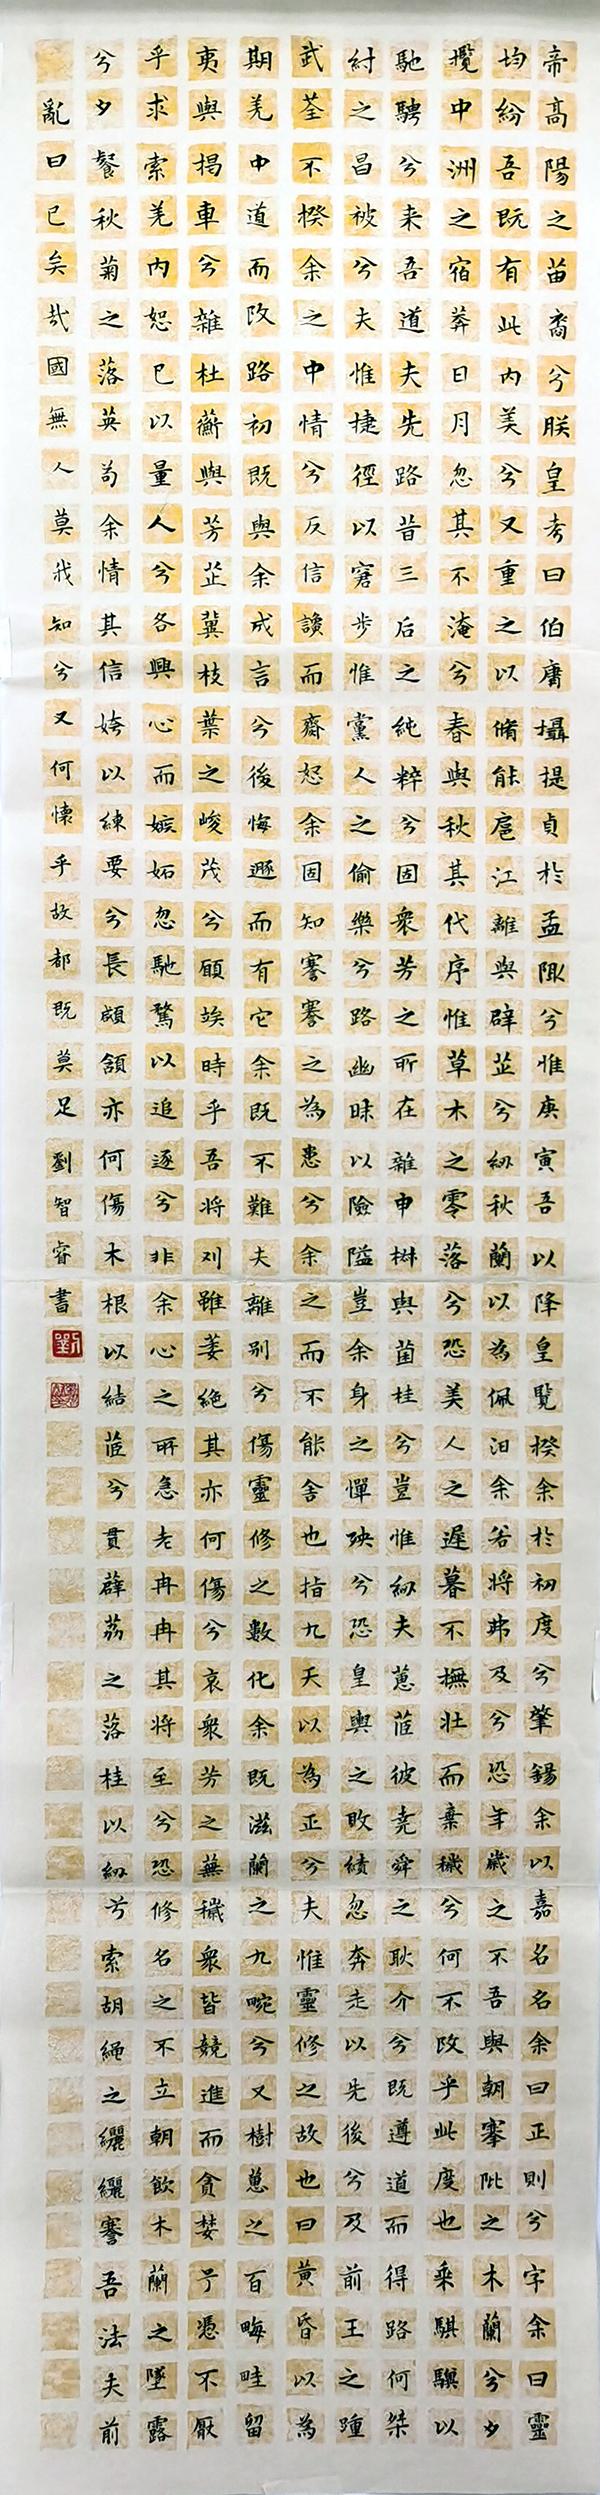 帝高陽之苗裔兮朕皇考曰伯庸攝提貞於孟陬兮惟庚寅吾以降皇覽揆余於初度兮肇錫余以嘉名名余曰正則兮字余曰靈
均紛吾既有此內美兮又重之以脩能扈江離與辟芷兮紉秋蘭以為佩汩余若將弗及兮恐年歲之不吾與朝搴阰之木蘭兮夕
攬中洲之宿莽日月忽其不淹兮春與秋其代序惟草木之零落兮恐美人之遲暮不撫壯而棄穢兮何不改乎此度也乘騏驥以
馳騁兮来吾道夫先路昔三后之純粹兮固衆芳之所在雜申椒與菌桂兮豈惟紉夫蕙茝彼堯舜之耿介兮既遵道而得路何桀
紂之昌被兮夫惟捷徑以窘步惟黨人之偷樂兮路幽昧以險隘豈余身之憚殃兮恐皇輿之敗績忽奔走以先後兮及前王之踵
武荃不揆余之中情兮反信讒而齋怒余固知謇謇之為患兮余之而不能舍也指九天以為正兮夫惟靈修之故也曰黄昏以為
期羌中道而改路初既與余成言兮後悔遯而有它余既不難夫離別兮傷靈修之數化余既滋蘭之九畹兮又樹蕙之百畮畦留
夷與揭車兮雜杜蘅與芳芷冀枝葉之峻茂兮願竢時乎吾將刈雖萎絕其亦何傷兮哀衆芳之蕪穢衆皆競進而貪婪兮憑不厭
乎求索羌內恕已以量人兮各興心而嫉妬忽馳騖以追逐兮非余心之所急老冉冉其將至兮恐修名之不立朝飲木蘭之墜露
兮夕餐秋菊之落英苟余情其信姱以練要兮長顑頷亦何傷木根以結茝兮貫薜荔之落桂以紉兮索胡繩之纚纚謇吾法夫前
亂曰已矣哉國無人莫我知兮又何懷乎故都既莫足劉智睿書
劉